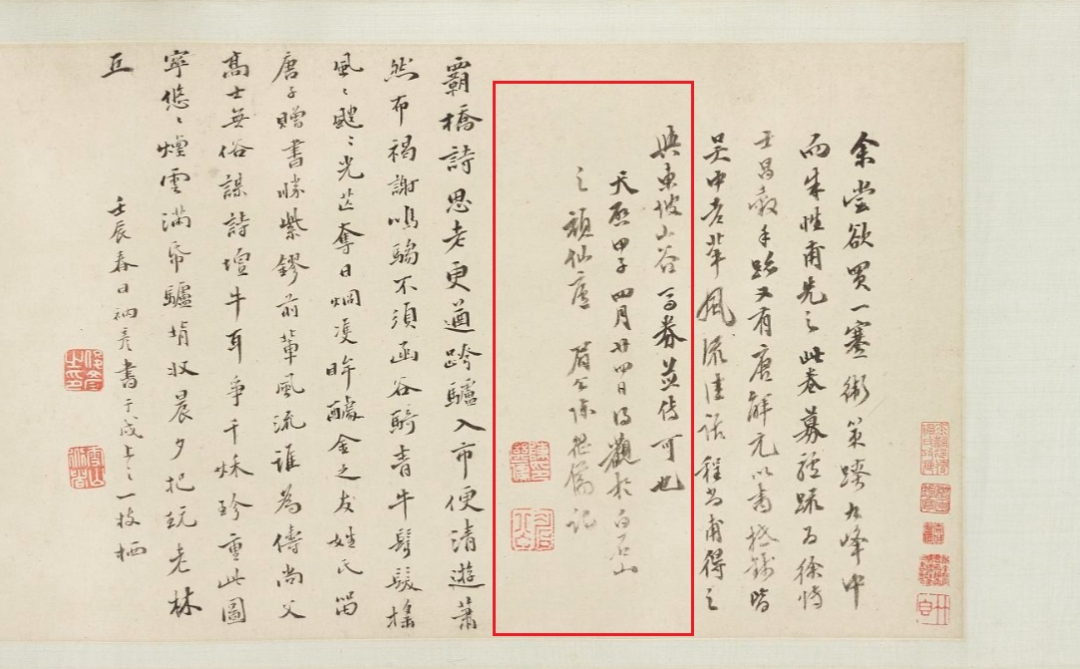 余嘗欲買一蹇衛策蹻九峰中
而朱性甫先之此卷募驢疏為徐
王昌穀手跡又有唐解元以書抵錢皆
吳中老輩風流佳話程尚甫得之
與東坡山谷馬券並傳可也
天啟甲子四月廿四日得觀於白石山
之頑仙廬 眉公陳繼儒記
霸橋詩思老更遒跨驢入市便清遊蕭
然布褐謝鳴騶不須函谷騎青牛髩髮搖
風風颼颼光芒奪日烱凌眸醵金之友姓氏留
唐子贈書勝紫鏐前輩風流誰為儔尚父
高士無俗謀詩壇牛耳爭千秋珍重此圖
寧悠悠煙雲滿紙驢背收晨夕把玩老林
丘
壬辰春日 書于 一枝栖